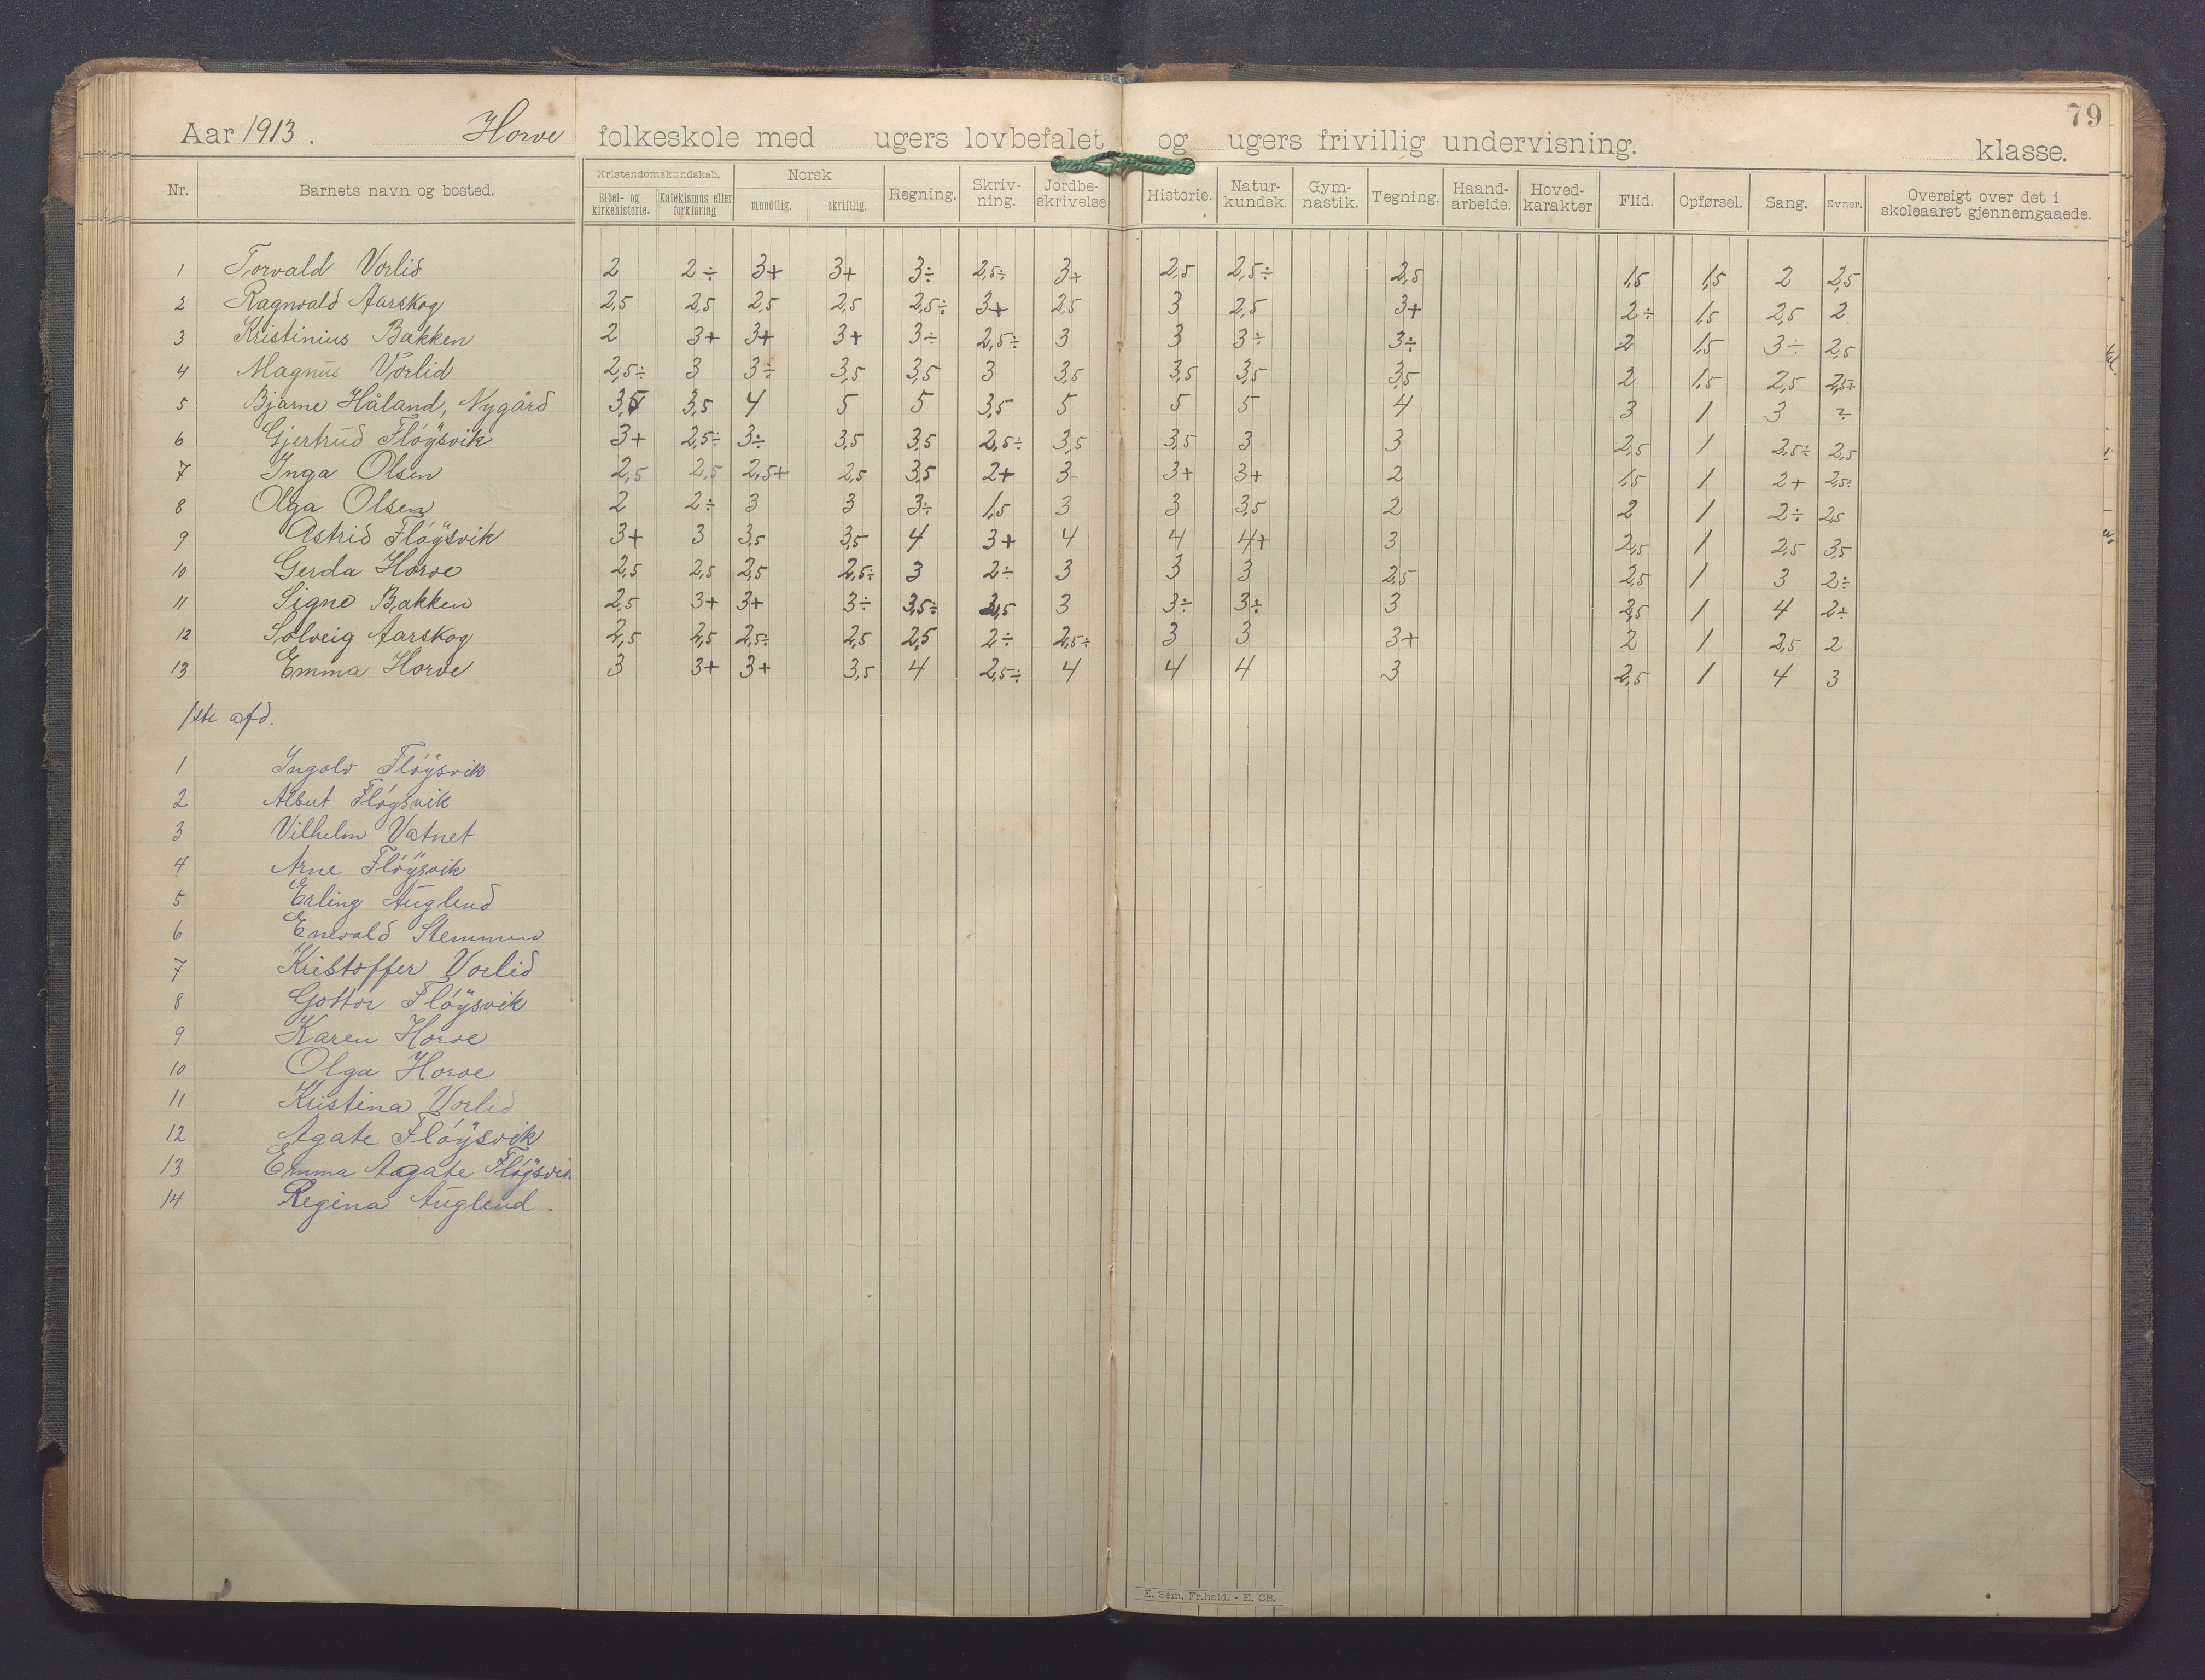 79
Aar 1913. Horve folkeskole med ugers lovbefalet og ugers frivillig undervisning. klasse.
Nr. Barnets navn og bosted. Kristendomskundskab. Bibel- og kirkehistorie. Katekismus eller forklaring Norsk mundtlig. skriftlig. Regning. Skriv-ning. Jordbe-skrivelse Historie. Natur-kundsk. Gym-nastik. Tegning. Haand-arbeide. Hoved-karakter Flid. Opførsel. Sang. Evner. Oversigt over det i skoleaaret gjennemgaaede.
1 Torvald Vorlid 2 2÷ 3+ 3+ 3÷ 2,5÷ 3+ 2,5 2,5÷ 2,5 1,5 1,5 2 2,5
2 Ragnvald Aarskog 2,5 2,5 2,5 2,5 2,5÷ 3+ 2,5 3 2,5 3+ 2÷ 1,5 2,5 2
3 Kristinius Bakken 2 3+ 3+ 3+ 3÷ 2,5÷ 3 3 3÷ 3÷ 2 1,5 3÷ 2,5
4 Magnus Vorlid 2,5÷ 3 3÷ 3,5 3,5 3 3,5 3,5 3,5 3,5 2 1,5 2,5 2,5÷
5 Bjarne Håland, Nygård 3,5 3,5 4 5 5 3,5 5 5 5 4 3 1 3 ?
6 Gjertrud Fløÿsvik 3+ 2,5÷ 3÷ 3,5 3,5 2,5÷ 3,5 3,5 3 3 2,5 1 2,5÷ 2,5
7 Inga Olsen 2,5 2,5 2,5+ 2,5 3,5 2+ 3 3+ 3+ 2 1,5 1 2+ 2,5÷
8 Olga Olsen 2 2÷ 3 3 3÷ 1,5 3 3 3,5 2 2 1 2÷ 2,5
9 Astrid Fløÿsvik 3+ 3 3,5 3,5 4 3+ 4 4 4+ 3 2,5 1 2,5 3,5
10 Gerda Horve 2,5 2,5 2,5 2,5÷ 3 2÷ 3 3 3 2,5 2,5 1 3 2÷
11 Signe Bakken 2,5 3+ 3+ 3÷ 3,5÷ 2,5 3 3÷ 3÷ 3 2,5 1 4 2÷
12 Solveig Aarskog 2,5 2,5 2,5÷ 2,5 2,5 2÷ 2,5÷ 3 3 3+ 2 1 2,5 2
13 Emma Horve 3 3+ 3+ 3,5 4 2,5÷ 4 4 4 3 2,5 1 4 3
1ste afd.
1 Ingolv Fløÿsvik
2 Albert Fløysvik
3 Vilhelm Vatnet
4 Arne Fløÿsvik
5 Erling Auglend
6 Enevald Stemmen
7 Kristoffer Vorlid
8 Gottor Fløÿsvik
9 Karen Horve
10 Olga Horve
11 Kristina Vorlid
12 Agate Fløÿsvik
13 Emma Aagate Fløÿsvik
14 Regina Auglend.
E. Sem, Fr.hald. - E. CB.